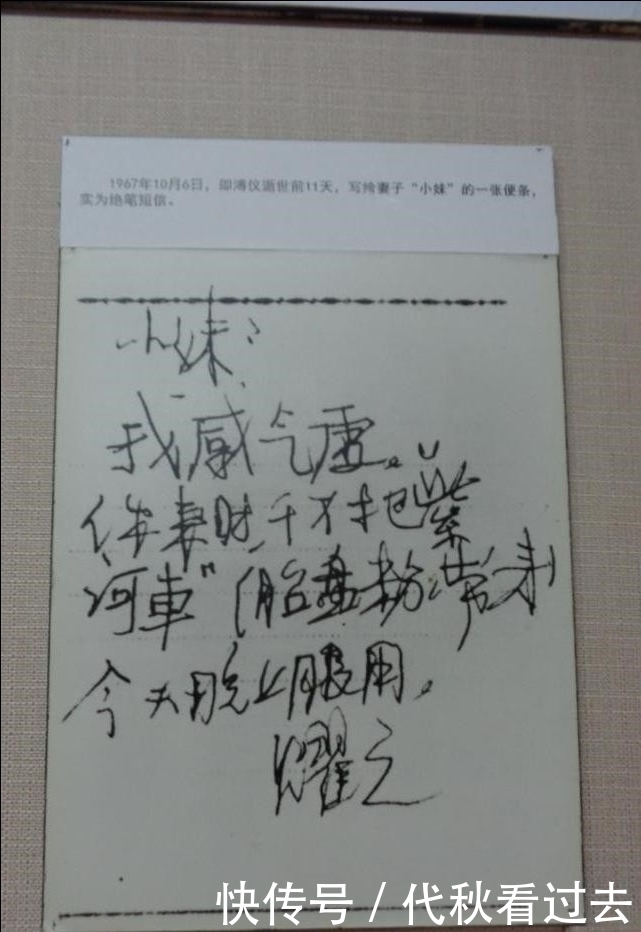 1967年10月6日，即溥仪逝世前11天，写给妻子“小妹”的一张便条，
实为绝笔短信。
小妹：
我感气虚。
你来时千万把“紫
河車”（胎盘粉带来
今天晚上服用。
耀之
快传号 / 代秋看过去